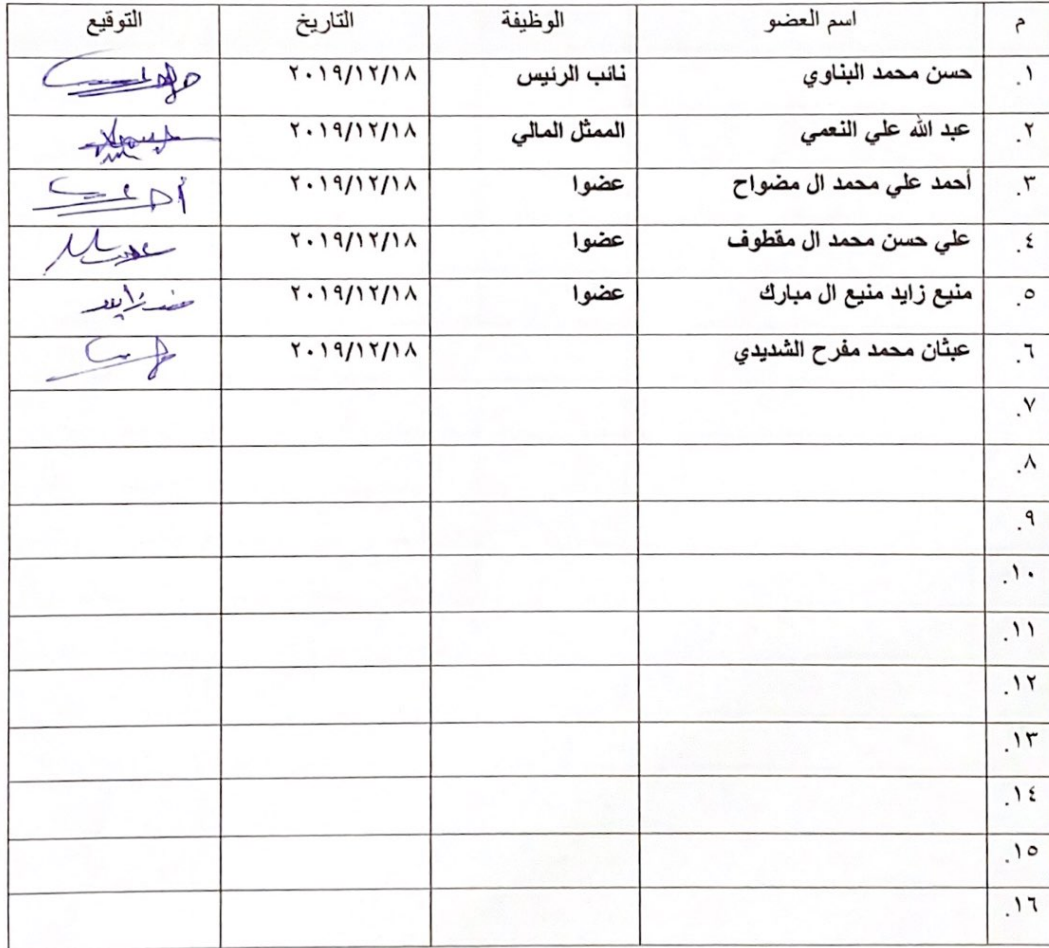 م اسم العضو الوظيفة التاريخ التوقيع
١. حسن محمد البناوي نائب الرئيس ٢٠١٩/١٢/١٨
٢. عبد الله علي النعمي الممثل المالي ٢٠١٩/١٢/١٨
٣. أحمد علي محمد ال مضواح عضوا ٢٠١٩/١٢/١٨
٤. علي حسن محمد ال مقطوف عضوا ٢٠١٩/١٢/١٨
٥. منيع زايد منيع ال مبارك عضوا ٢٠١٩/١٢/١٨
٦. عبثان محمد مفرح الشديدي ٢٠١٩/١٢/١٨
٧.
٨.
٩.
١٠.
١١.
١٢.
١٣.
١٤.
١٥.
١٦.